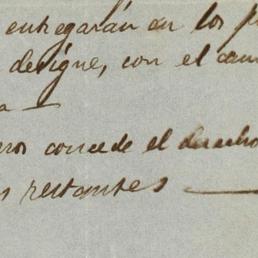 entregarán en los
designe, con el
concede el derecho
restantes